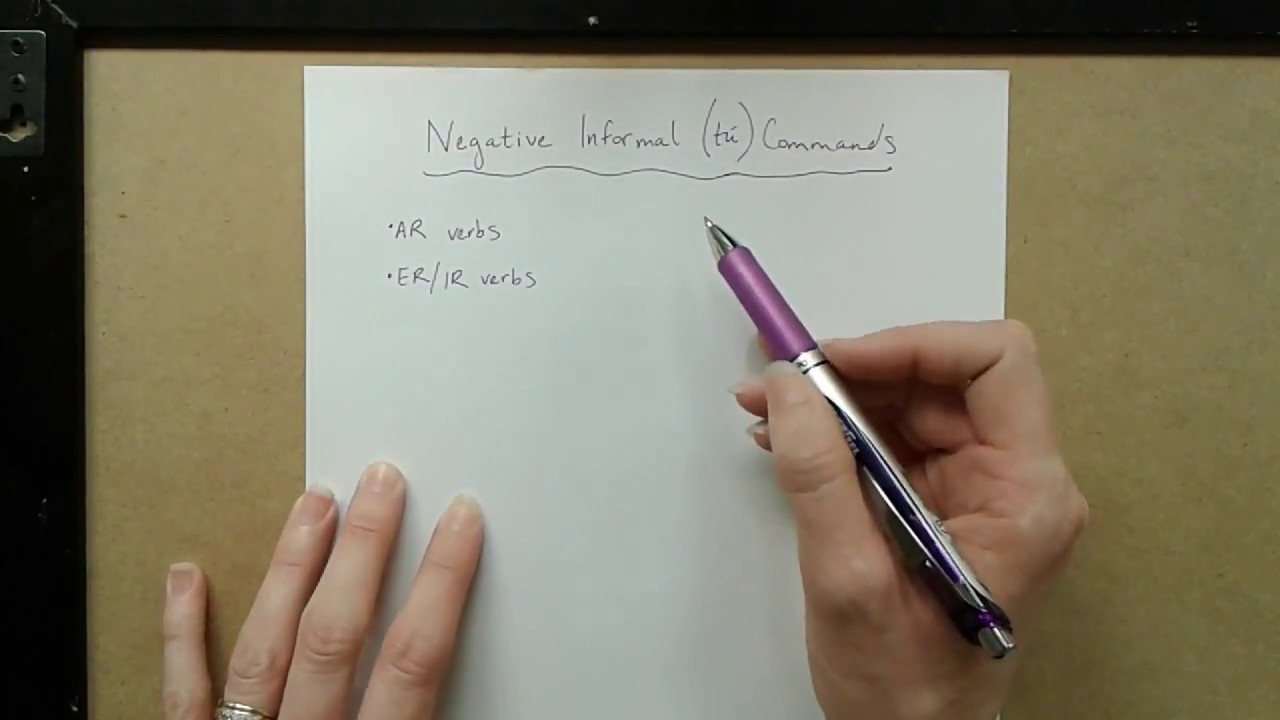 Negative Informal (tú) Commands
•AR verbs
•ER/IR verbs